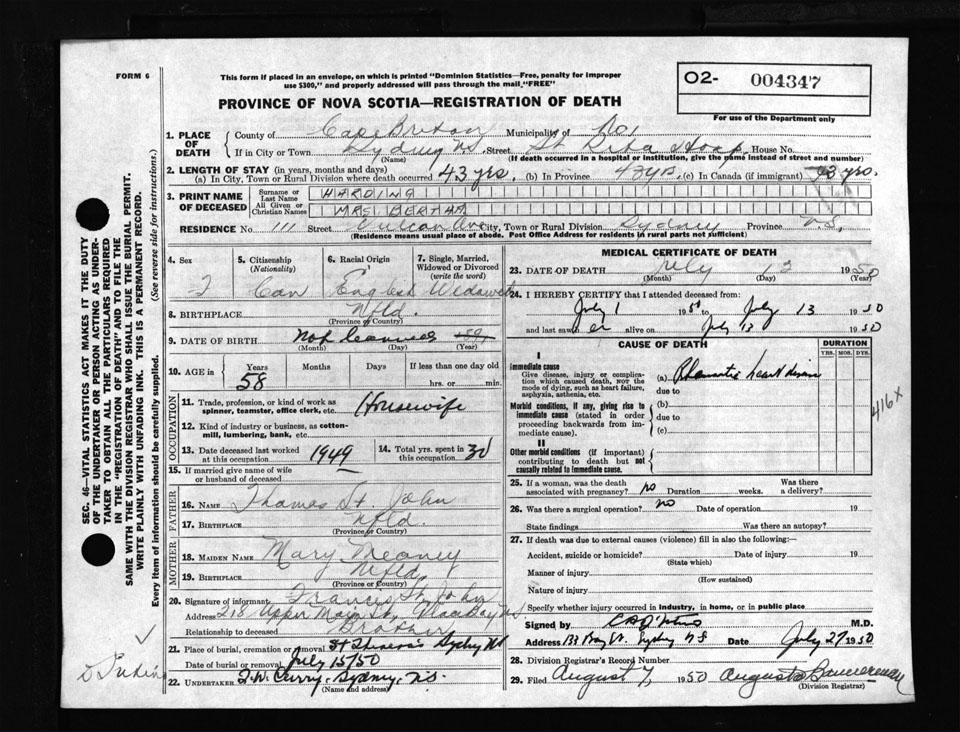 FORM 6
This form if placed in an envelope, on which is printed "Dominion Statistics—Free, penalty for improper
use $300," and properly addressed will pass through the mail "FREE"
O2- 004347
For use of the Department only
PROVINCE OF NOVA SCOTIA—REGISTRATION OF DEATH
SEC. 46—VITAL STATISTICS ACT MAKES IT THE DUTY
OF THE UNDERTAKER OR PERSON ACTING AS UNDER-
TAKER TO OBTAIN ALL THE PARTICULARS REQUIRED
IN THE "REGISTRATION OF DEATH" AND TO FILE THE
SAME WITH THE DIVISION REGISTRAR WHO SHALL ISSUE THE BURIAL PERMIT.
WRITE PLAINLY WITH UNFADING INK. THIS IS A PERMANENT RECORD.
Every item of information should be carefully supplied. (See reverse side for instructions.)
1. PLACE OF DEATH
County of Cape Breton Municipality of
If in City or Town Sydney N.S. Street St Rita Hosp. House No.
(Name) (If death occurred in a hospital or institution, give the name instead of street and number)
2. LENGTH OF STAY (in years, months and days)
(a) In City, Town or Rural Division where death occurred 43 yrs. (b) In Province 43 yrs. (c) In Canada (if immigrant) 43 yrs.
3. PRINT NAME OF DECEASED
Surname or Last Name HARDING
All Given or Christian Names MRS. BERTHA
RESIDENCE No. 111 Street Vulcan Ave City, Town or Rural Division Sydney Province N.S.
(Residence means usual place of abode. Post Office Address for residents in rural parts not sufficient)
4. Sex
F
5. Citizenship (Nationality)
Can
6. Racial Origin
English
7. Single, Married, Widowed or Divorced (write the word)
Widowed
8. BIRTHPLACE Nfld.
(Province or Country)
9. DATE OF BIRTH Not learned
(Month) (Day) (Year)
10. AGE in Years 58 Months Days If less than one day old
hrs. or min.
OCCUPATION
11. Trade, profession, or kind of work as
spinner, teamster, office clerk, etc. Housewife
12. Kind of industry or business, as cotton-
mill, lumbering, bank, etc.
13. Date deceased last worked at this occupation 1949
14. Total yrs. spent in this occupation 30
15. If married give name of wife
or husband of deceased
FATHER
16. NAME Thomas St. John
17. BIRTHPLACE Nfld.
(Province or Country)
MOTHER
18. MAIDEN NAME Mary Meaney
19. BIRTHPLACE Nfld.
(Province or Country)
20. Signature of informant Frances St. John
Address 218 Upper Main St. Glace Bay N.S.
Relationship to deceased Brother
21. Place of burial, cremation or removal Sydney NS
Date of burial or removal July 15/50
22. UNDERTAKER F.W. Curry, Sydney, N.S.
(Name and address)
MEDICAL CERTIFICATE OF DEATH
23. DATE OF DEATH July 13 1950
(Month) (Day) (Year)
24. I HEREBY CERTIFY that I attended deceased from:
July 1 1950 to July 13 1950
and last saw er alive on July 13 1950
CAUSE OF DEATH DURATION
YRS. MOS. DYS.
I
Immediate cause
Give disease, injury or complica-
tion which caused death, not the
mode of dying, such as heart failure,
asphyxia, asthenia, etc.
(a) Rheumatic heart disease
due to
Morbid conditions, if any, giving rise to
immediate cause (stated in order
proceeding backwards from im-
mediate cause).
(b)
due to
(c)
II
Other morbid conditions (if important)
contributing to death but not
causally related to immediate cause.
416x
25. If a woman, was the death
associated with pregnancy? no Duration weeks. Was there a delivery?
26. Was there a surgical operation? no Date of operation 19
State findings Was there an autopsy?
27. If death was due to external causes (violence) fill in also the following:—
Accident, suicide or homicide? Date of injury 19
(State which)
Manner of injury
(How sustained)
Nature of injury
Specify whether injury occurred in industry, in home, or in public place
Signed by M.D.
Address Sydney N S Date July 27 1950
28. Division Registrar's Record Number
29. Filed August 7, 1950 Augusta Bannerman
(Division Registrar)